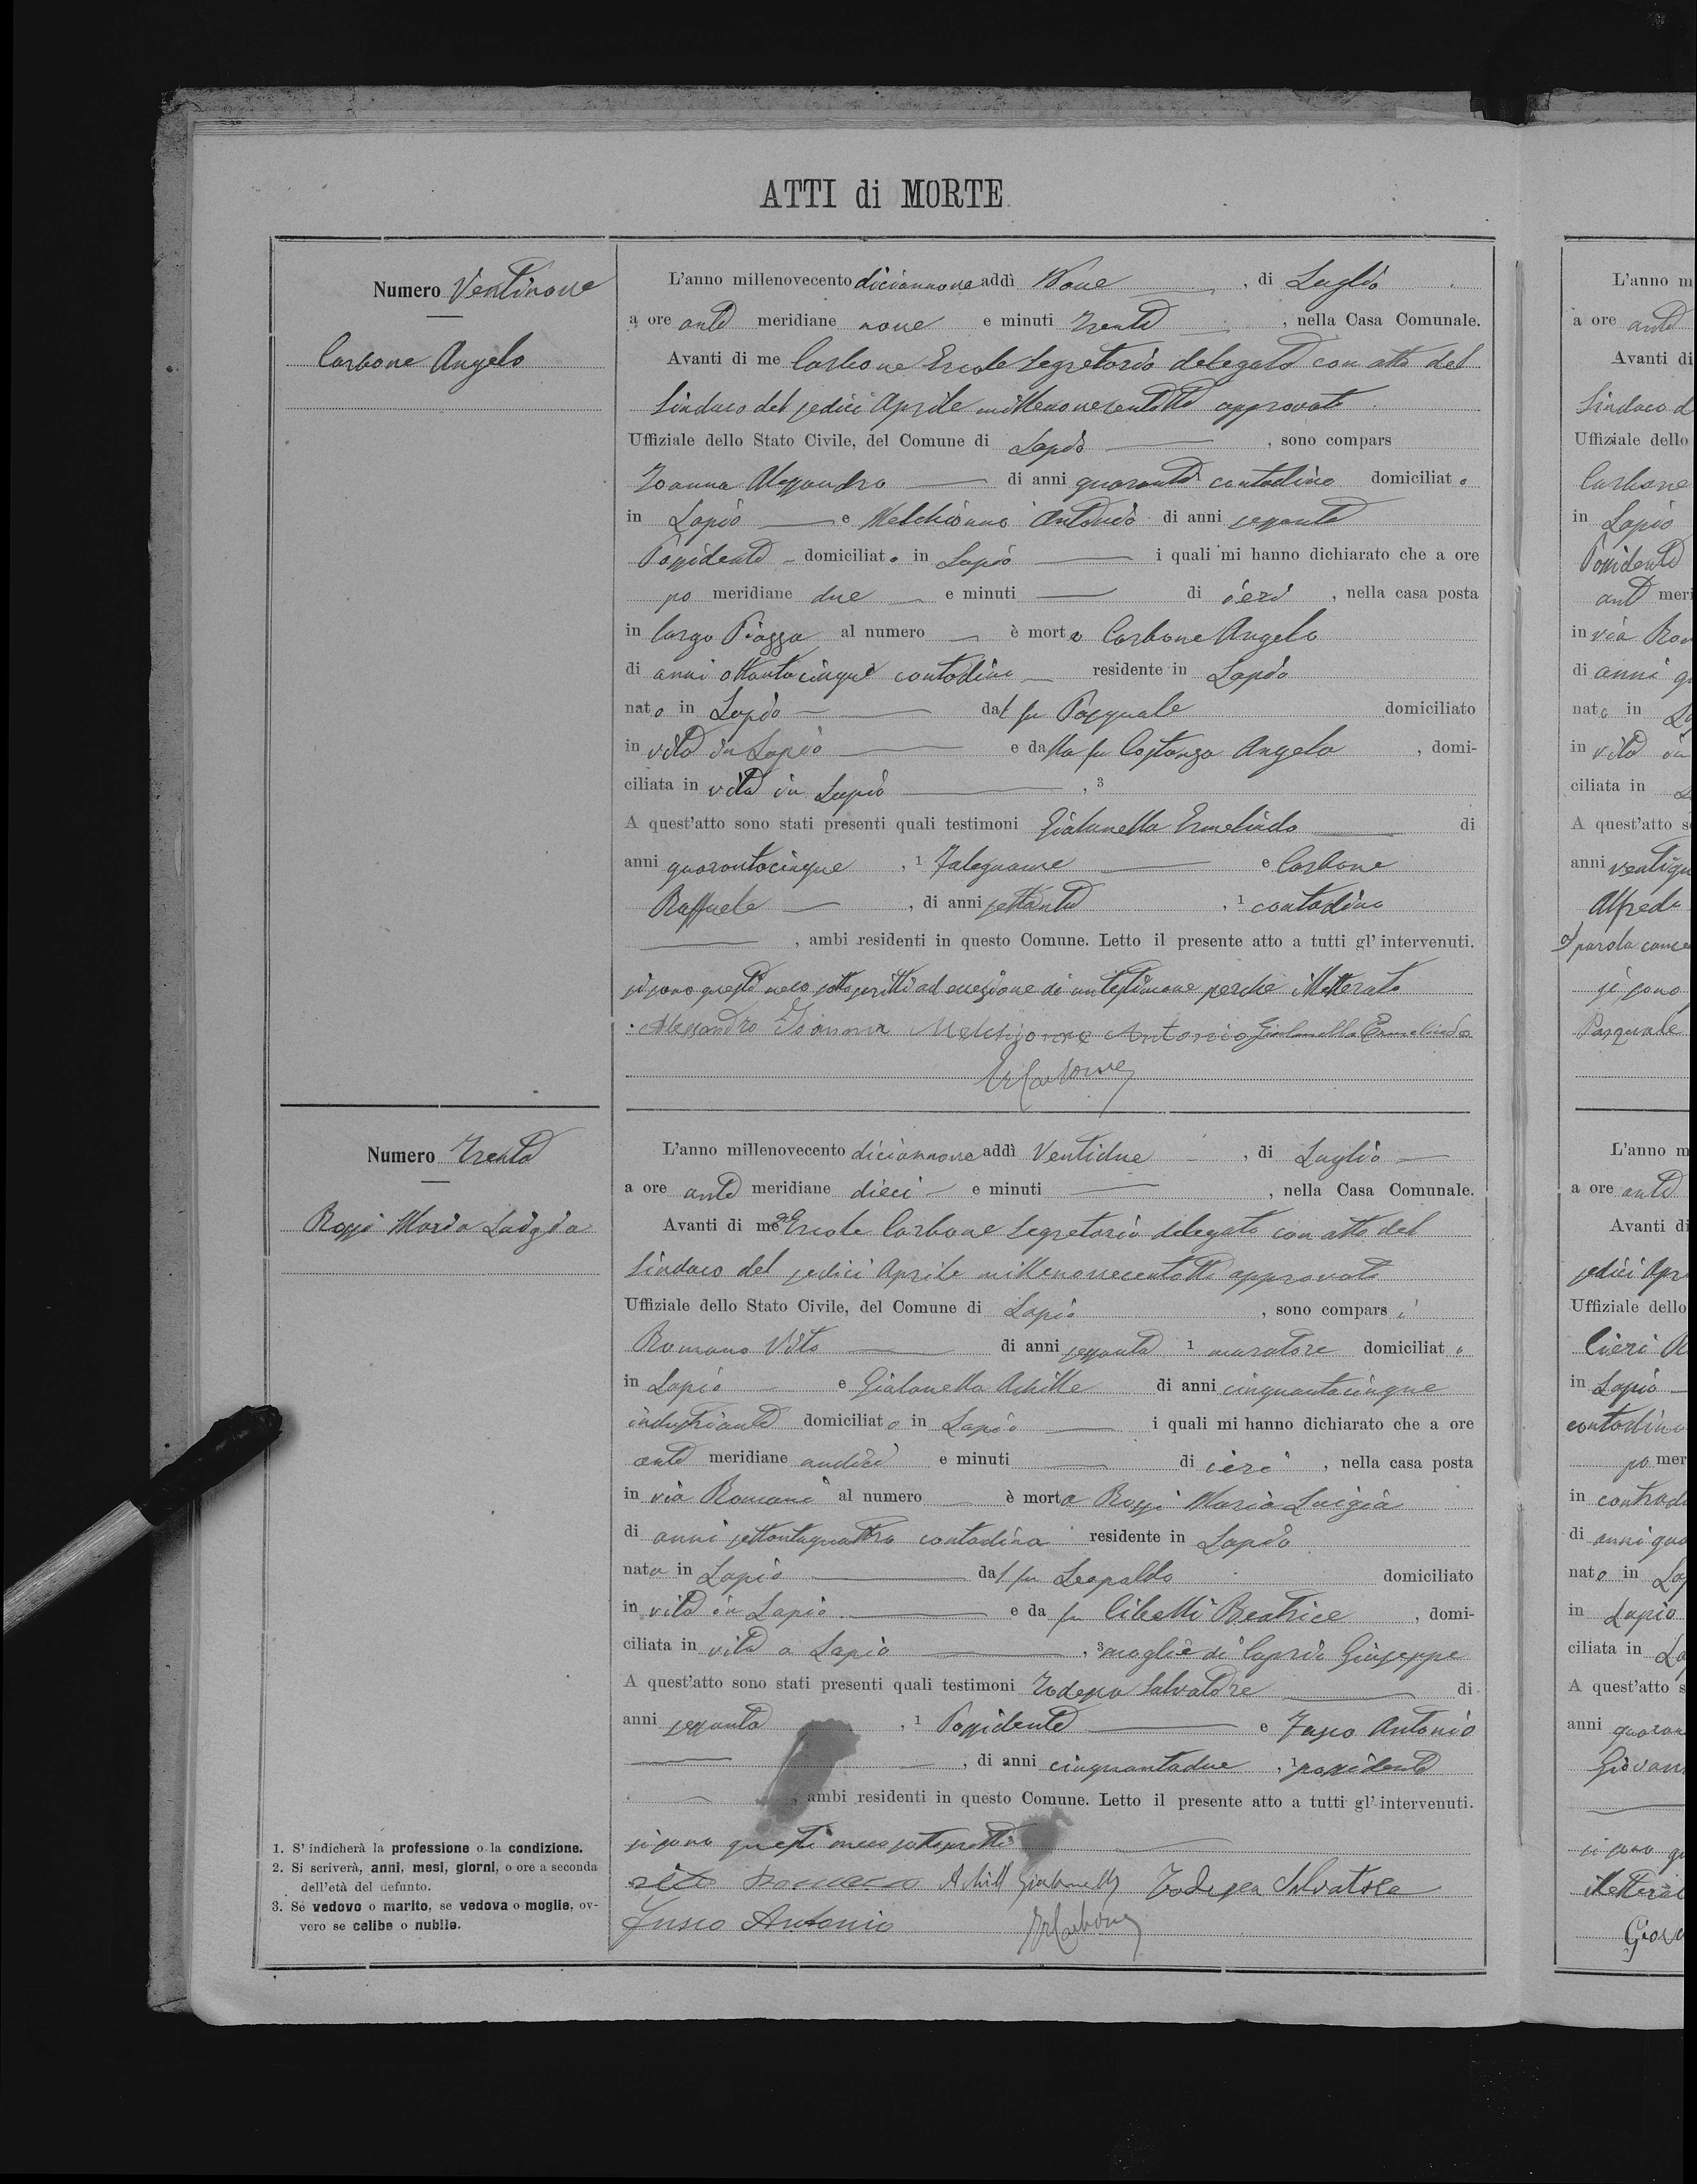 ATTI di MORTE
Numero Ventinove
Carbone Angelo
L'anno millenovecento diciannove addì Nove, di Luglio
a ore ante meridiane nove e minuti trenta, nella Casa Comunale.
Avanti di me Carbone Ercole Segretario delegato con atto del
Sindaco del sedici Aprile millenovecentotto approvato
Uffiziale dello Stato Civile, del Comune di Lapio, sono compars
Ioanna Alessandro di anni quaranta contadino domiciliato
in Lapio e Melchionno Antonio di anni sessanta
Possidente domiciliato in Lapio i quali mi hanno dichiarato che a ore
po meridiane due e minuti di ieri, nella casa posta
in largo Piazza al numero è morto Carbone Angelo
di anni ottantacinque contadino residente in Lapio
nato in Lapio dal fu Pasquale domiciliato
in vita in Lapio e dalla fu Costanza Angela, domi-
ciliata in vita in Lapio, 3
A quest'atto sono stati presenti quali testimoni Gialanella Ermelindo di
anni quarantacinque, 1 Falegname e Carbone
Raffaele, di anni settanta, 1 contadino
, ambi residenti in questo Comune. Letto il presente atto a tutti gl'intervenuti.
si sono questi meco sottoscritti ad eccezione di un testimone perché illetterato
Alessandro Ioanna Melchionne Antonio Gialanella Ermelindo
ErCarbone
Numero Trenta
Rossi Maria Luigia
L'anno millenovecento diciannove addì Ventidue, di Luglio
a ore ante meridiane dieci e minuti, nella Casa Comunale.
Avanti di me Ercole Carbone Segretario delegato con atto del
Sindaco del sedici Aprile millenovecentotto approvato
Uffiziale dello Stato Civile, del Comune di Lapio, sono comparsi
Romano Vito di anni sessanta 1 muratore domiciliato
in Lapio e Gialanella Achille di anni cinquantacinque
industriante domiciliato in Lapio i quali mi hanno dichiarato che a ore
ante meridiane undici e minuti di ieri, nella casa posta
in via Romani al numero è morta Rossi Maria Luigia
di anni settantaquattro contadina residente in Lapio
nata in Lapio dal fu Leopaldo domiciliato
in vita in Lapio e da fu Cibelli Beatrice, domi-
ciliata in vita a Lapio, 3 moglie di Caprio Giuseppe
A quest'atto sono stati presenti quali testimoni Todesca Salvatore di
anni sessanta, 1 Possidente e Fusco Antonio
, di anni cinquantadue, 1 possidente
, ambi residenti in questo Comune. Letto il presente atto a tutti gl'intervenuti.
si sono questi meco sottoscritti
Vito Romano Achill Gialanella Todesca Salvatore
Fusco Antonio ErCarbone
1. S'indicherà la professione o la condizione.
2. Si scriverà, anni, mesi, giorni, o ore a seconda
dell'età del defunto.
3. Se vedovo o marito, se vedova o moglie, ov-
vero se celibe o nubile.
L'anno m
a ore ante
Avanti di
Sindaco d
Uffiziale dello
Carbone
in Lapio
Possidente
ant meri
in via Rom
di anni q
nato in La
in vita in
ciliata in
A quest'atto s
anni ventiqu
Alfredo
si sono
Pasquale
L'anno m
a ore ante
Avanti di
sedici Apr
Uffiziale dello
Cieri
in Lapio
contadino
po mer
in contrad
di anni qua
nato in Lap
in Lapio
ciliata in La
A quest'atto s
anni quaran
Giovan
si sono qu
illetterat
Giova